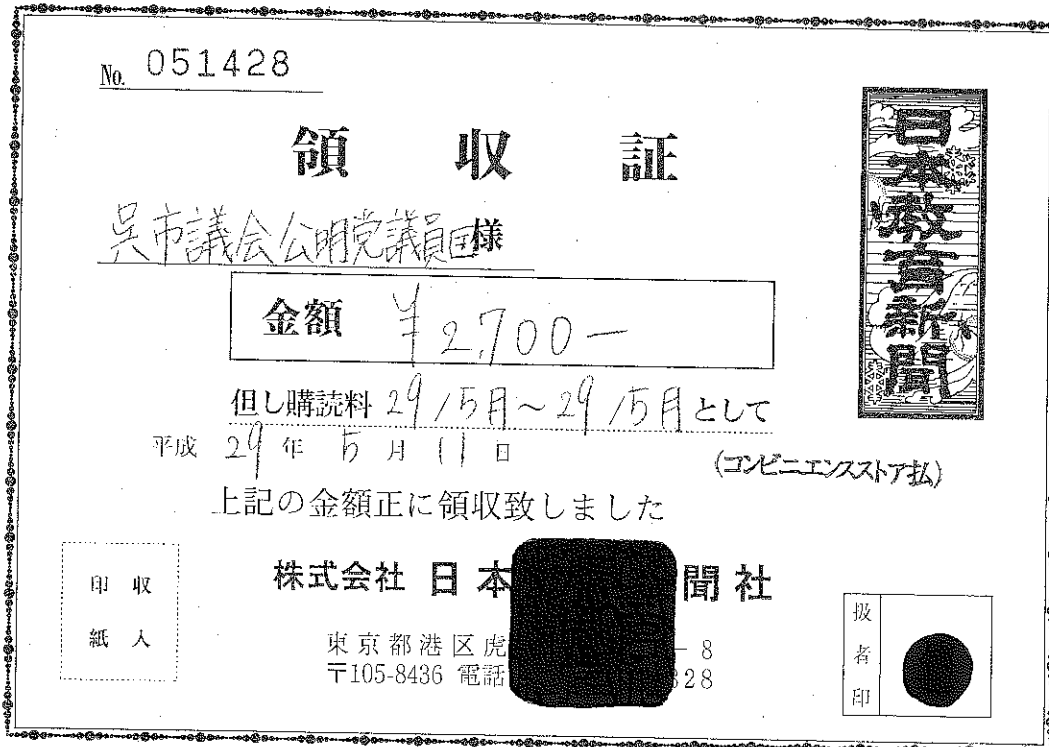 No. 051428
領収証
呉市議会公明党議員団様
金額 ¥2,700-
但し購読料 29/5月~29/5月として
平成 29年 5月 11日
(コンビニエンスストア払)
上記の金額正に領収致しました
日本教育新聞
収入
印紙
株式会社 日本 聞社
東京都港区虎 -8
〒105-8436 電話 328
扱者印